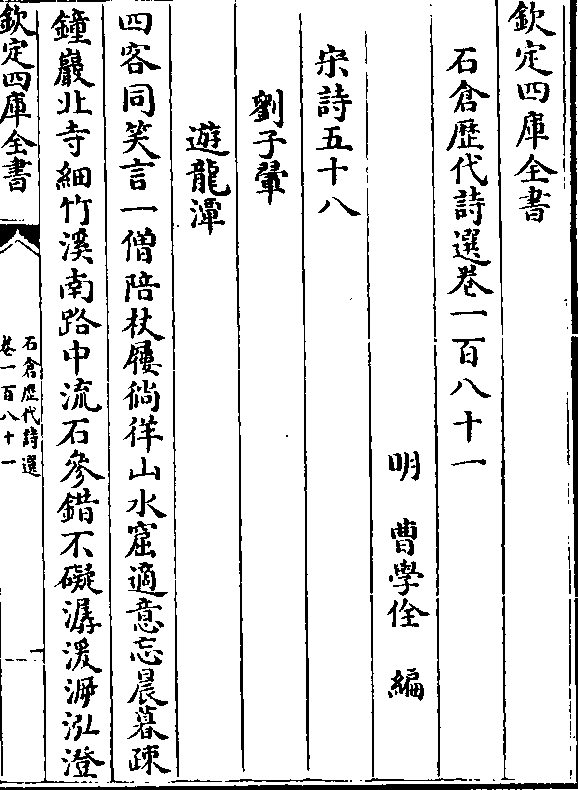 欽定四庫全書
石倉歴代詩選卷一百八十一
明 曹學佺 編
宋詩五十八
劉子翬
遊龍潭
四客同笑言一僧陪杖屨徜徉山水窟適意忘晨暮疎
鐘巖北寺細竹溪南路中流石參錯不礙潺湲泝泓澄
欽定四庫全書
石倉歴代詩選
卷一百八十一
一